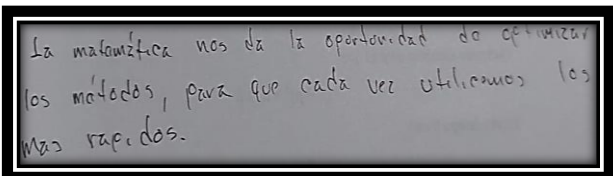 La matemática nos da la oportunidad de optimizar
los métodos, para que cada vez utilicemos los
mas rapidos.